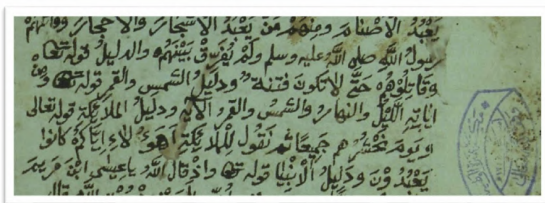 يعبد الاصنام ومنهم من يعبد الاشجار والاحجار وقاتلهم
رسول الله صلى الله عليه وسلم ولم يفرق بينهم والدليل قوله تعا
وقاتلوهم حتى لا تكون فتنة ودليل الشمس والقمر قوله تعا ومن
اياته الليل والنهار والشمس والقمر الاية ودليل الملايكة قوله تعالى
ويوم نحشرهم جميعا ثم نقول للملايكة اهولاء اياكم كانوا
يعبدون ودليل الانبيا قوله تعا واذ قال الله يا عيسى ابن مريم